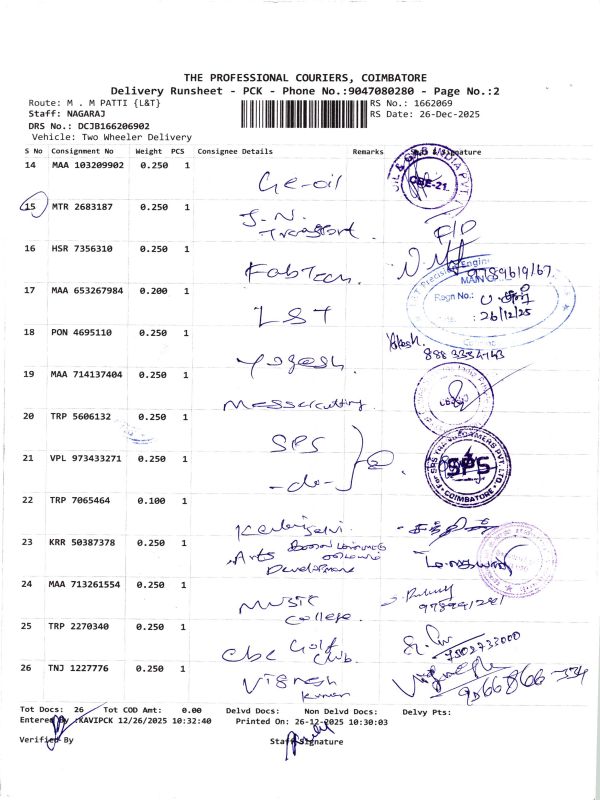 THE PROFESSIONAL COURIERS, COIMBATORE
Delivery Runsheet - PCK - Phone No.:9047080280 - Page No.:2
Route: M . M PATTI {L&T} RS No.: 1662069
Staff: NAGARAJ RS Date: 26-Dec-2025
DRS No.: DCJB166206902
Vehicle: Two Wheeler Delivery
S No Consignment No Weight PCS Consignee Details Remarks Signature
14 MAA 103209902 0.250 1 Ge-oil CBE-21.
15 MTR 2683187 0.250 1 J.N. Transport. F/D
16 HSR 7356310 0.250 1 FabTech. 9789619167
17 MAA 653267984 0.200 1 L&T Regn No.: 26/12/25
18 PON 4695110 0.250 1 Yogesh.
19 MAA 714137404 0.250 1 Messercutting.
20 TRP 5606132 0.250 1 SPS
21 VPL 973433271 0.250 1 -do- SPS COIMBATORE
22 TRP 7065464 0.100 1
23 KRR 50387378 0.250 1 Arts Development
24 MAA 713261554 0.250 1 Music College.
25 TRP 2270340 0.250 1 CBC Golf Club. 7502733000
26 TNJ 1227776 0.250 1 Vignesh Kumar
Tot Docs: 26 Tot COD Amt: 0.00 Delvd Docs: Non Delvd Docs: Delvy Pts:
Entered By :KAVIPCK 12/26/2025 10:32:40 Printed On: 26-12-2025 10:30:03
Verified By Staff Signature